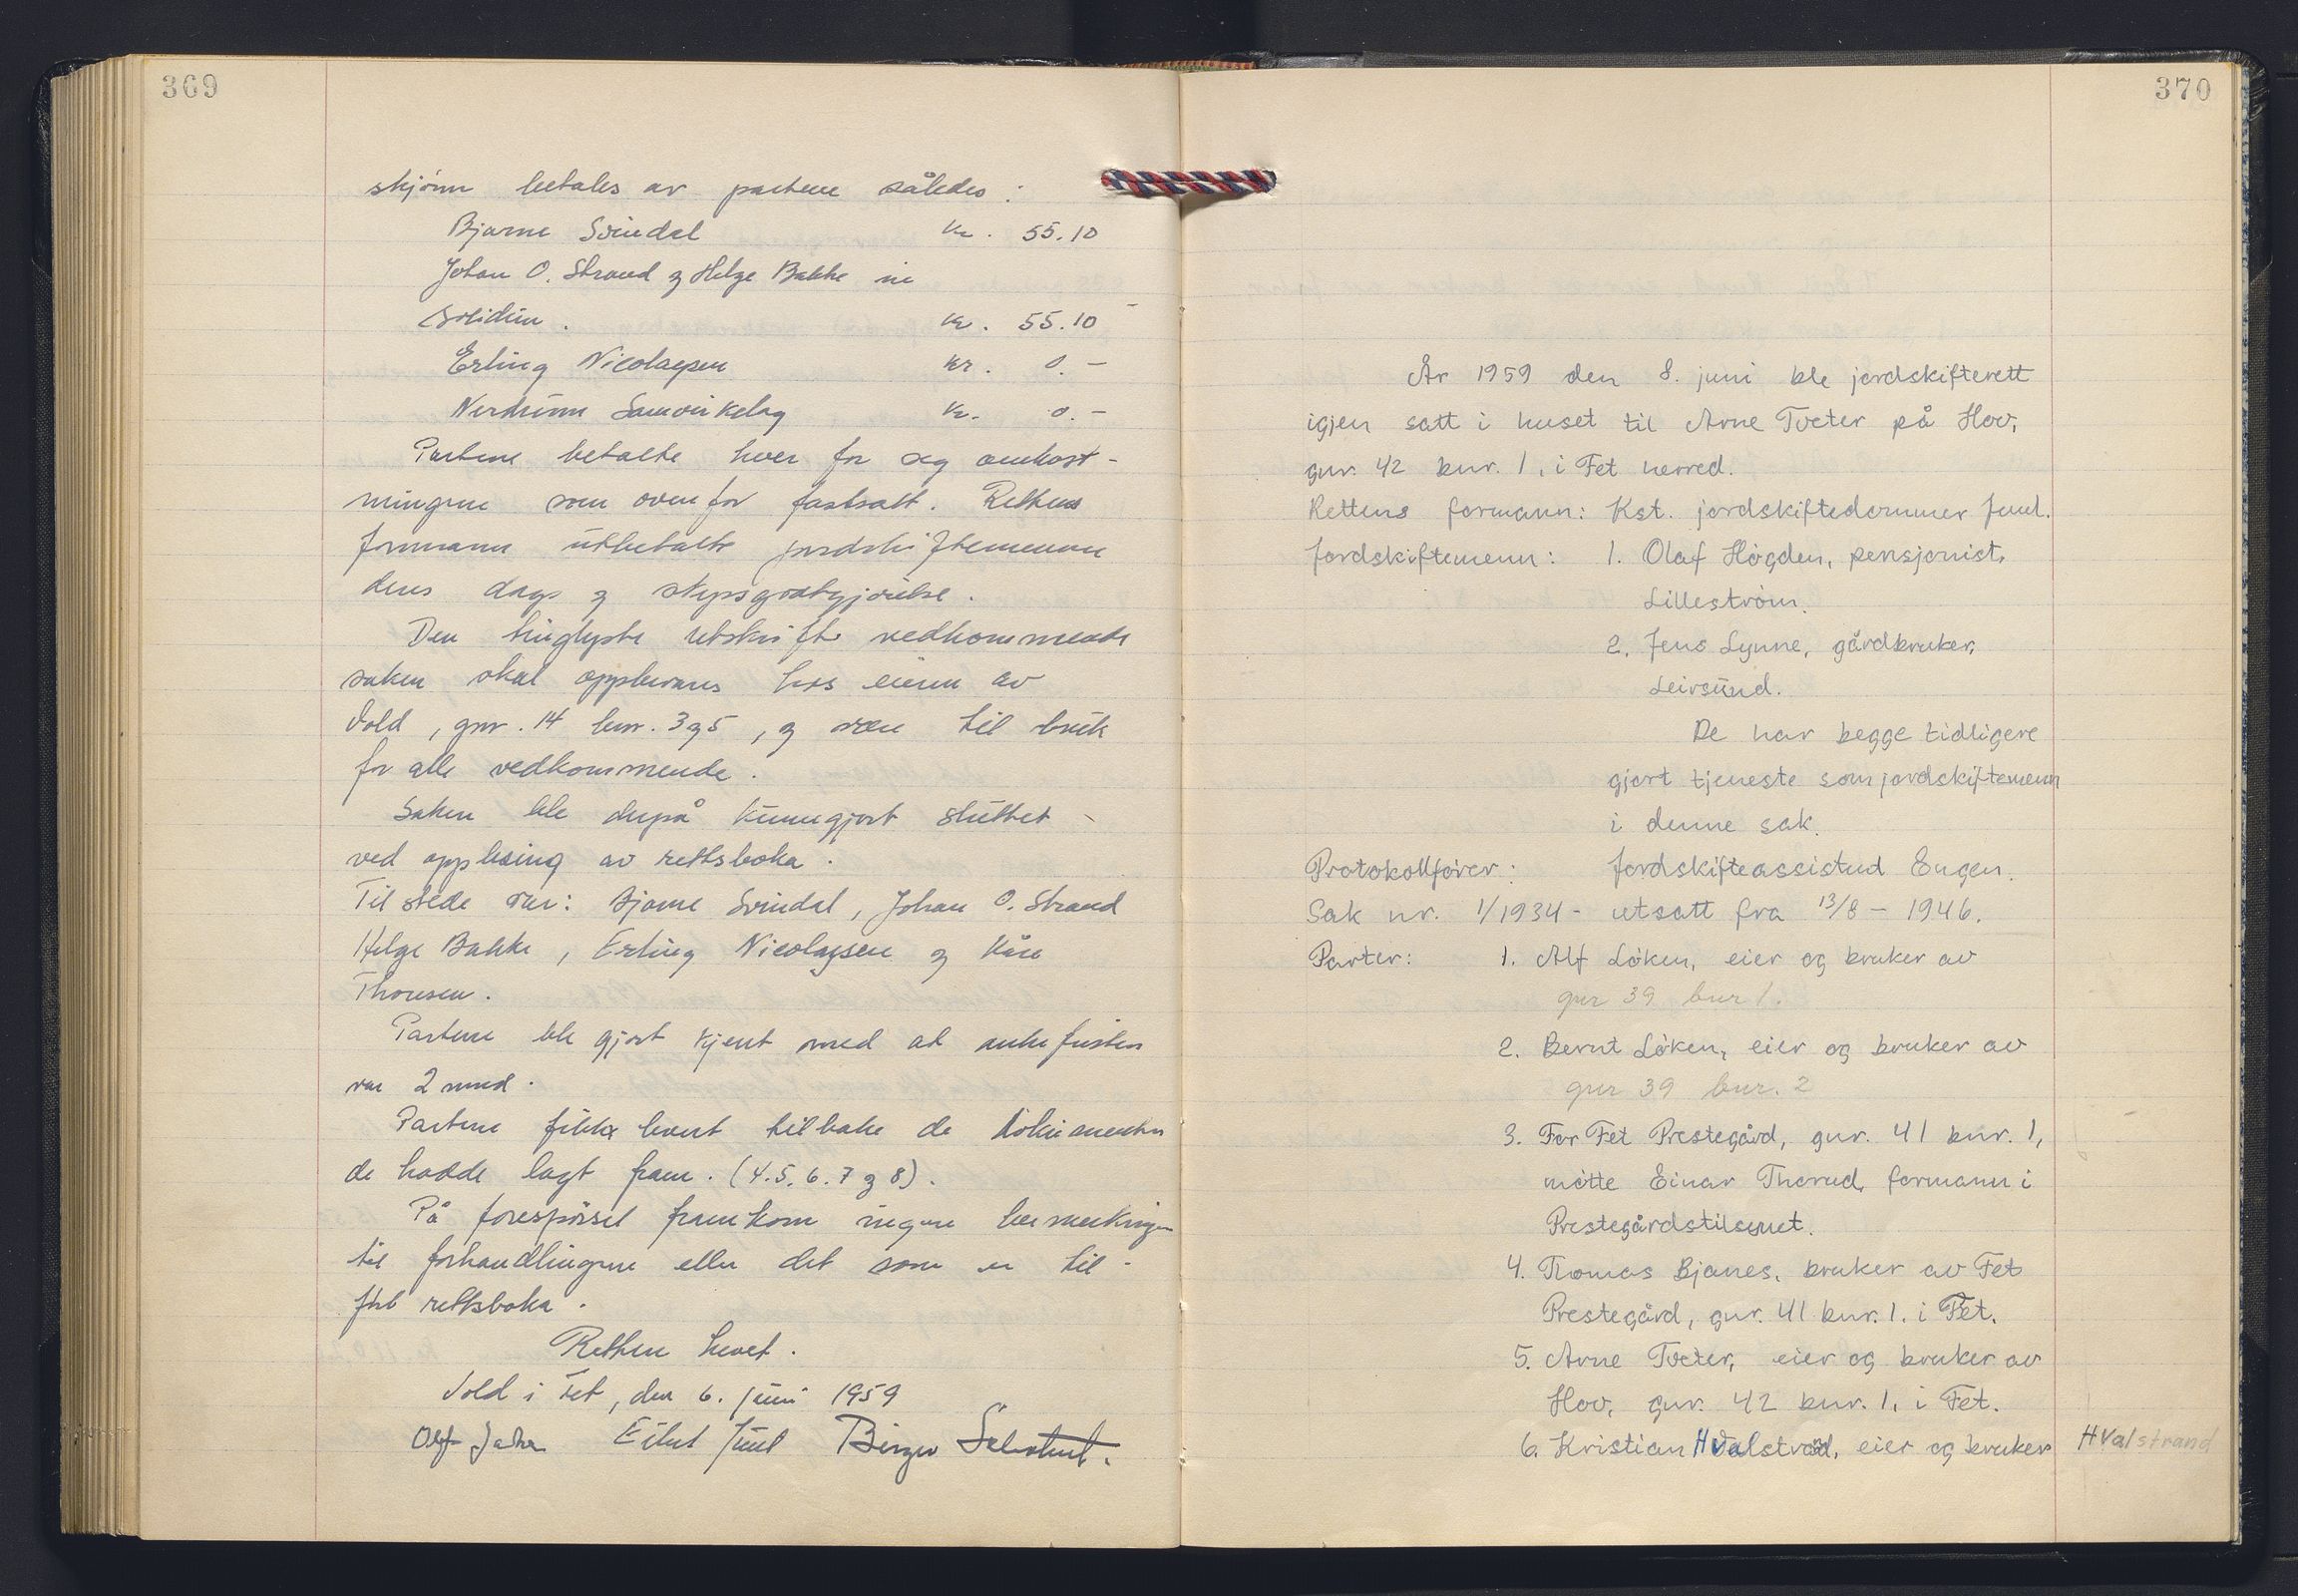 369
skjønn betales av partene således:
Bjarne Svindal kr. 55.10
Johan O. Strand og Helge Bakke in
solidum. kr. 55.10
Erling Nicolaysen kr. 0.-
Nerdrum Samvirkelag kr. 0.-
Partene betalte hver for seg omkost-
ningene som ovenfor fastsatt. Rettens
formann utbetalte jordskiftemennene
deres dags og skyssgodtgjørelse.
Den tinglyste utskrift vedkommende
saken skal oppbevares hos eieren av
Vold, gnr. 14 bnr. 3 og 5, og være til bruk
for alle vedkommende.
Saken ble derpå kunngjort sluttet
ved opplesing av rettsboka.
Til stede var: Bjarne Svindal, Johan O. Strand
Helge Bakke, Erling Nicolaysen og Kåre
Thoresen.
Partene ble gjort kjent med at ankefristen
var 2 mnd.
Partene fikk levert tilbake de dokumenter
de hadde lagt fram. (4.5.6.7 og 8).
På forespørsel framkom ingen bemerkninger
til forhandlingene eller det som er til-
ført rettsboka.
Retten hevet.
Vold i Fet, den 6. juni 1959
Eilert Juul Birger
370
År 1959 den 8. juni ble jordskifterett
igjen satt i huset til Arne Tveter på Hov,
gnr. 42 bnr. 1, i Fet herred.
Rettens formann: Kst. jordskiftedommer Juul.
Jordskiftemenn: 1. Olaf Högden, pensjonist,
Lilleström.
2. Jens Lynne, gårdbruker,
Leirsund.
De har begge tidligere
gjort tjeneste som jordskiftemenn
i denne sak.
Protokollfører: Jordskifteassistent Engen.
Sak nr. 1/1934 - utsatt fra 13/8 - 1946.
Parter: 1. Alf Löken, eier og bruker av
gnr 39 bnr 1.
2. Bernt Löken, eier og bruker av
gnr 39 bnr. 2
3. For Fet Prestegård, gnr. 41 bnr. 1,
møtte Einar Thorud, formann i
Prestegårdstilsynet.
4. Thomas Bjanes, bruker av Fet
Prestegård, gnr. 41 bnr. 1. i Fet.
5. Arne Tveter, eier og bruker av
Hov, gnr. 42 bnr. 1, i Fet.
6. Kristian Hvalstrand, eier og bruker HValstrand